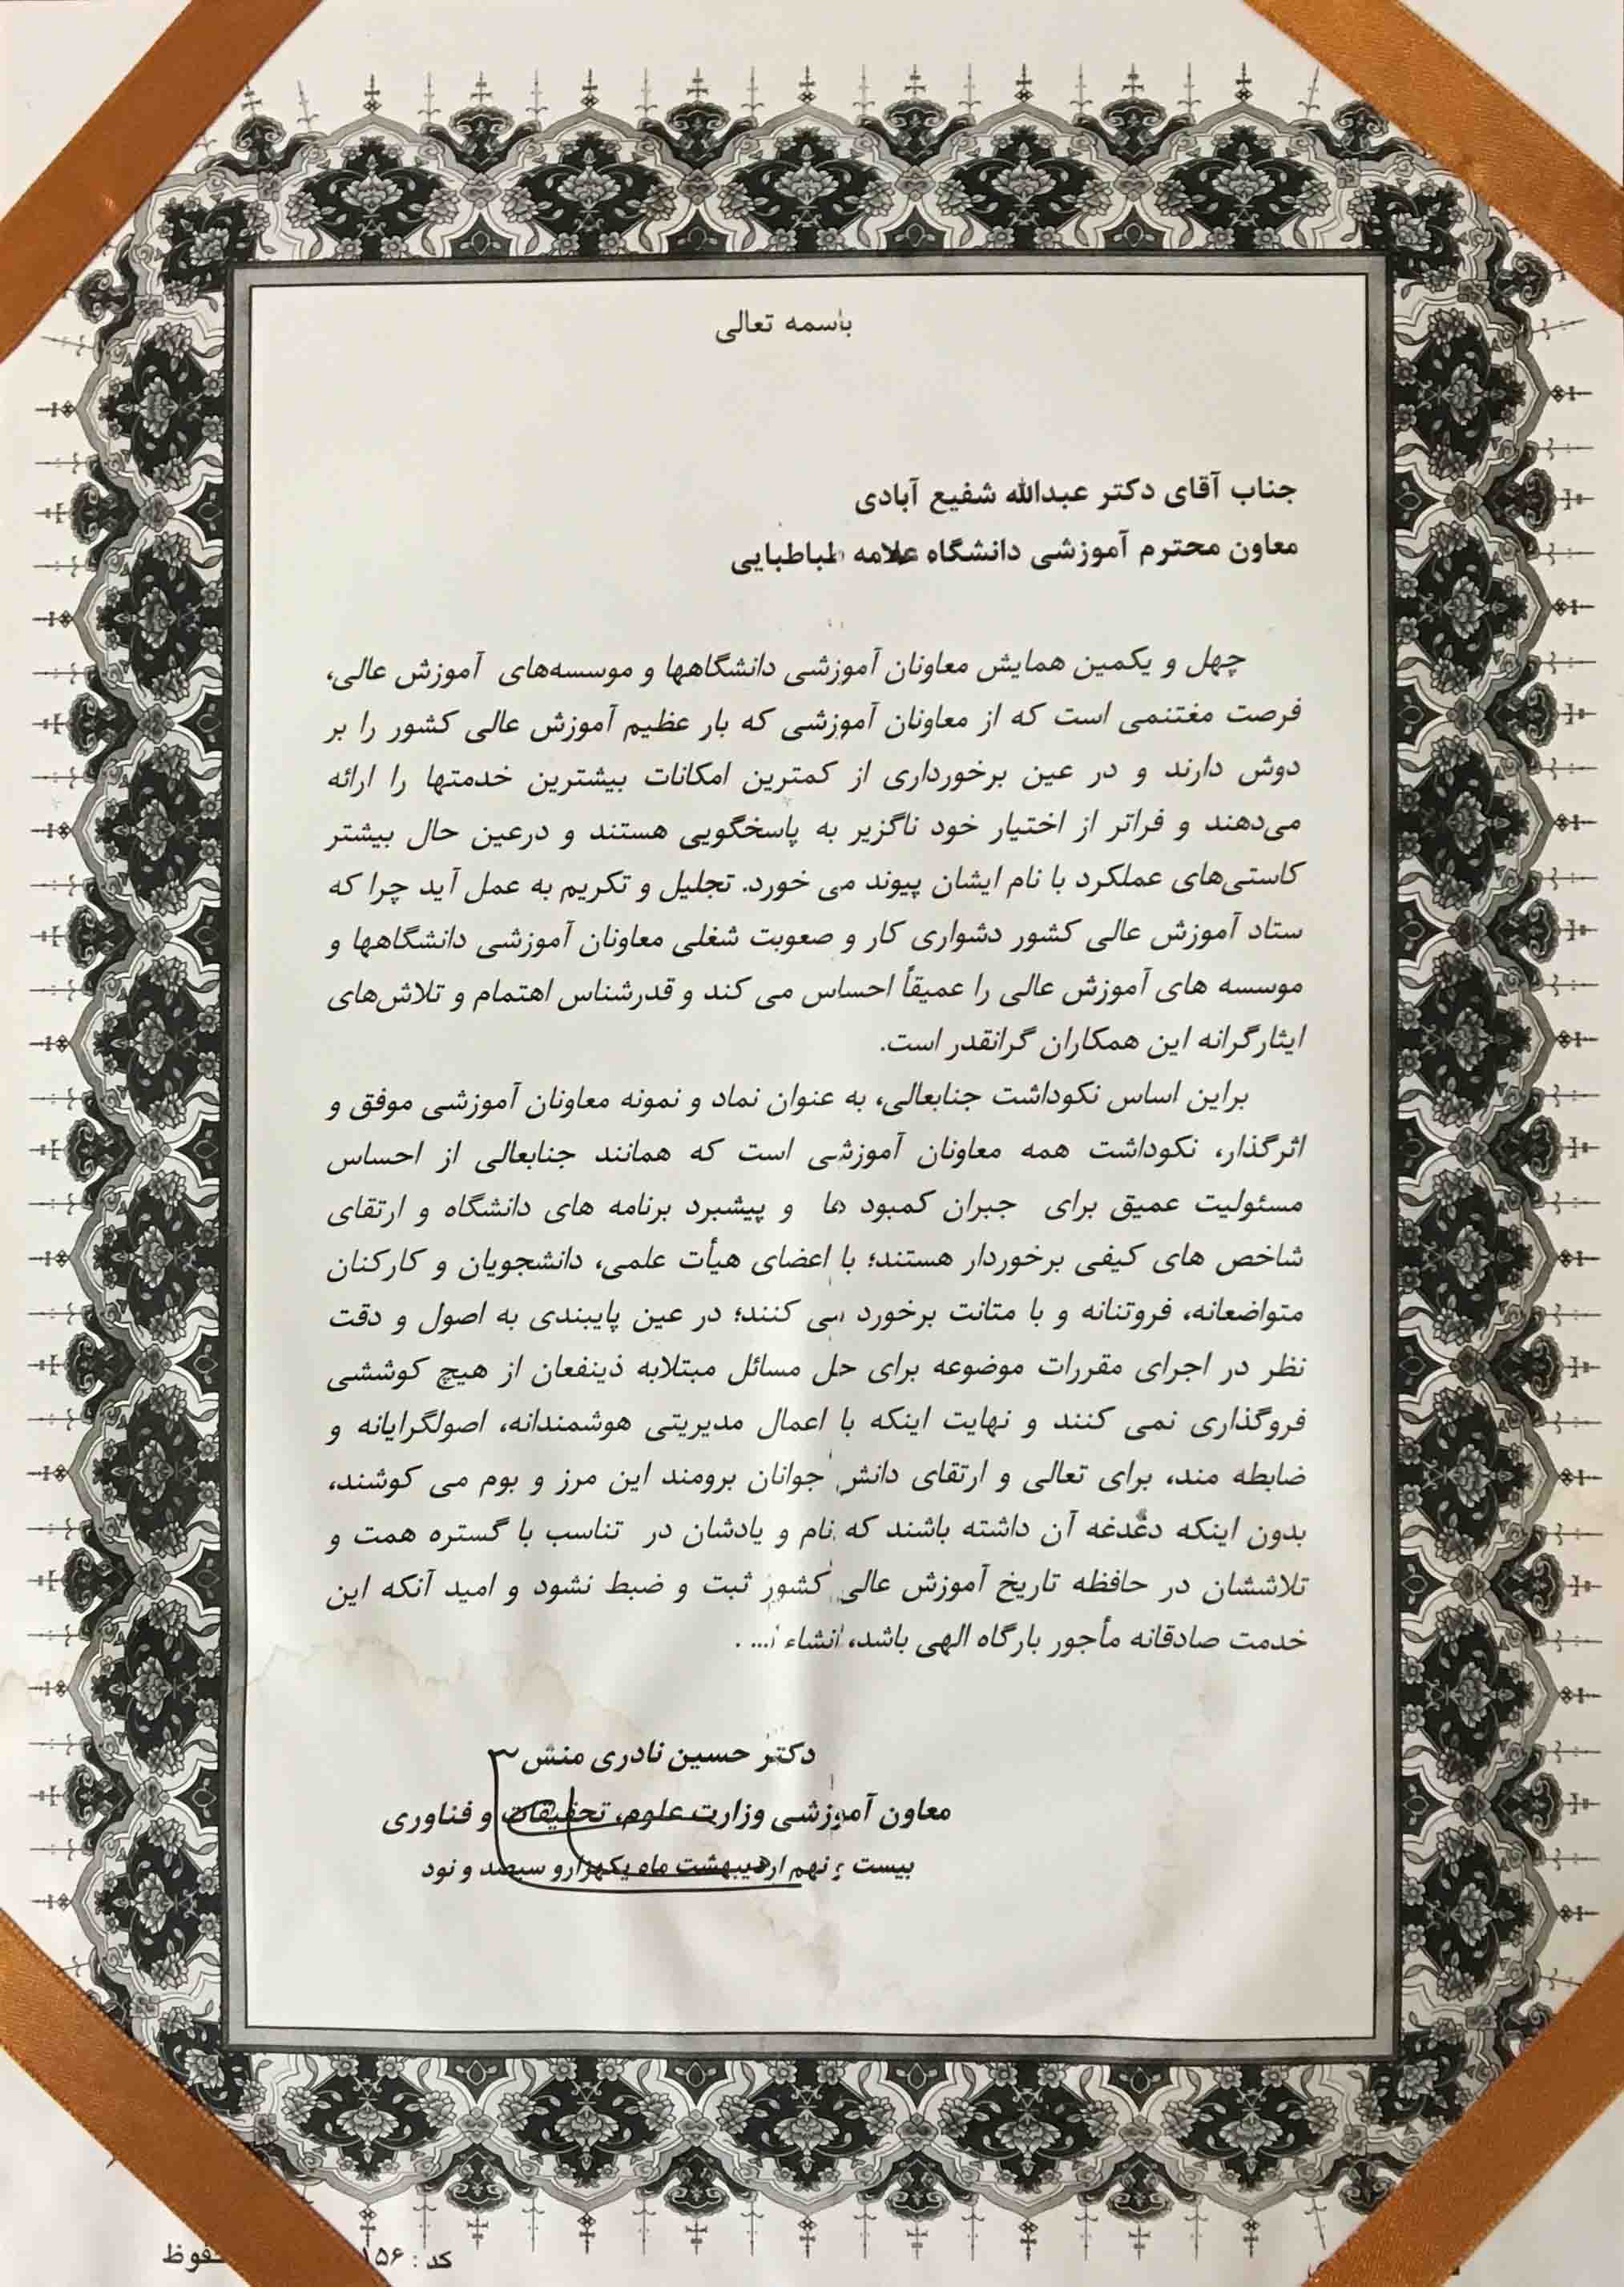 باسمه تعالی
جناب آقای دکتر عبدالله شفیع آبادی
معاون محترم آموزشی دانشگاه علامه طباطبایی
چهل و یکمین همایش معاونان آموزشی دانشگاهها و موسسه‌های آموزش عالی،
فرصت مغتنمی است که از معاونان آموزشی که بار عظیم آموزش عالی کشور را بر
دوش دارند و در عین برخورداری از کمترین امکانات بیشترین خدمتها را ارائه
می‌دهند و فراتر از اختیار خود ناگزیر به پاسخگویی هستند و درعین حال بیشتر
کاستی‌های عملکرد با نام ایشان پیوند می خورد. تجلیل و تکریم به عمل آید چرا که
ستاد آموزش عالی کشور دشواری کار و صعوبت شغلی معاونان آموزشی دانشگاهها و
موسسه های آموزش عالی را عمیقاً احساس می کند و قدرشناس اهتمام و تلاش‌های
ایثارگرانه این همکاران گرانقدر است.
براین اساس نکوداشت جنابعالی، به عنوان نماد و نمونه معاونان آموزشی موفق و
اثرگذار، نکوداشت همه معاونان آموزشی است که همانند جنابعالی از احساس
مسئولیت عمیق برای جبران کمبود ها و پیشبرد برنامه های دانشگاه و ارتقای
شاخص های کیفی برخوردار هستند؛ با اعضای هیأت علمی، دانشجویان و کارکنان
متواضعانه، فروتنانه و با متانت برخورد می کنند؛ در عین پایبندی به اصول و دقت
نظر در اجرای مقررات موضوعه برای حل مسائل مبتلابه ذینفعان از هیچ کوششی
فروگذاری نمی کنند و نهایت اینکه با اعمال مدیریتی هوشمندانه، اصولگرایانه و
ضابطه مند، برای تعالی و ارتقای دانش جوانان برومند این مرز و بوم می کوشند،
بدون اینکه دغدغه آن داشته باشند که نام و یادشان در تناسب با گستره همت و
تلاششان در حافظه تاریخ آموزش عالی کشور ثبت و ضبط نشود و امید آنکه این
خدمت صادقانه مأجور بارگاه الهی باشد، انشاء ا... .
دکتر حسین نادری منش
معاون آموزشی وزارت علوم، تحقیقات و فناوری
بیست و نهم اردیبهشت ماه یکهزارو سیصد و نود
کد : ۱۵۶